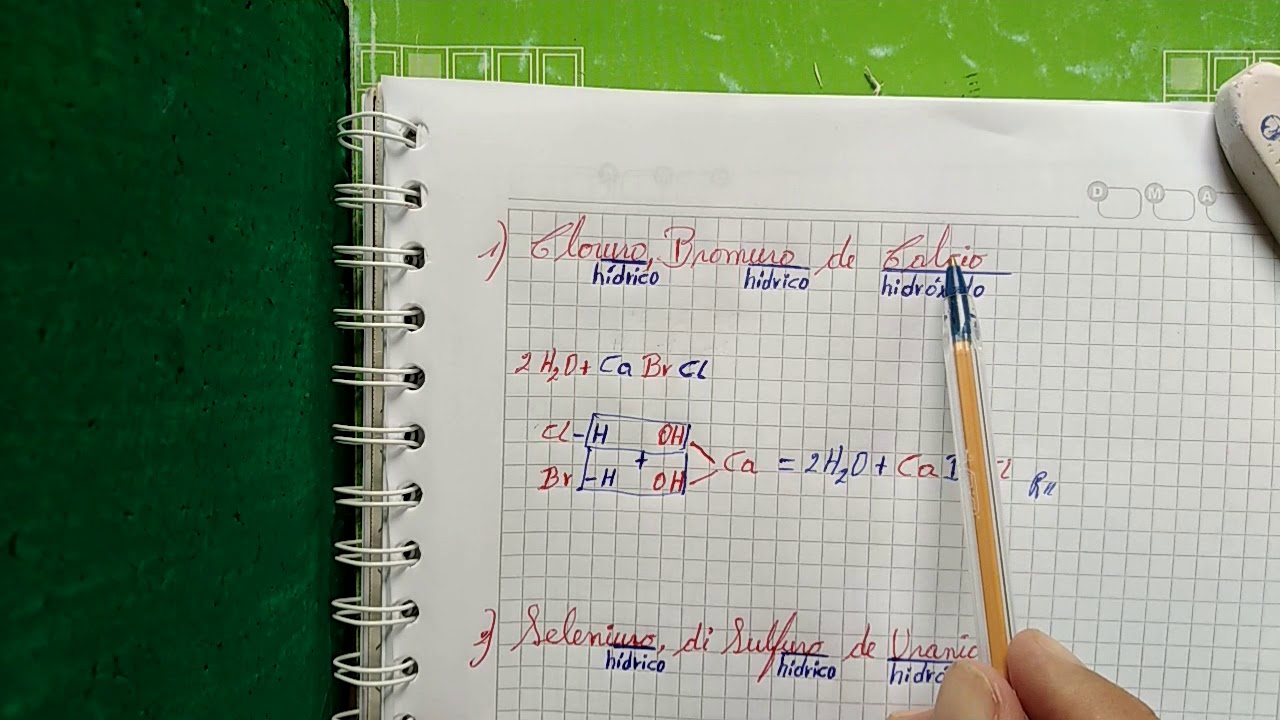 D M A
1) Cloruro, Bromuro de Calcio
hídrico hídrico
2H₂O + CaBrCl
Cl-H OH
+ Ca = 2H₂O + Ca
Br-H OH
R//
2) Seleniuro, di Sulfuro de
hídrico hídrico